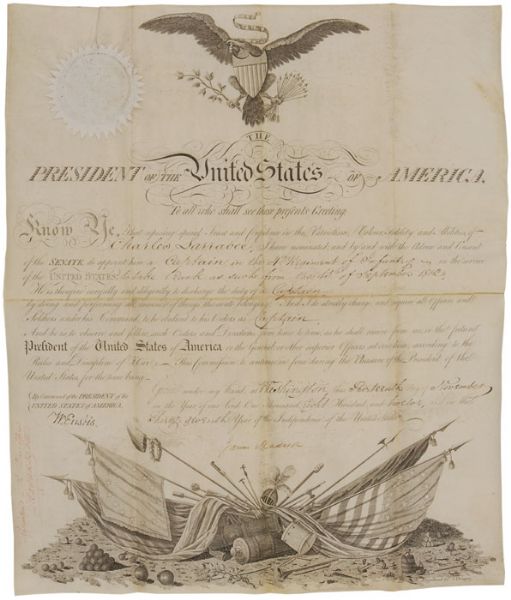 THE
PRESIDENT OF THE United States OF AMERICA,
To all who shall see these presents Greeting
Know Ye, That reposing special Trust and Confidence in the Patriotism, Valour, Fidelity and Abilities of
Charles Larrabee, I have nominated and by and with the Advice and Consent
of the SENATE do appoint him a Captain in the 4th Regiment of Infantry in the service
of the UNITED STATES: to Rank as such from the day of September 1812.
He is therefore carefully and diligently to discharge the duty of Captain
by doing and performing all manner of things thereunto belonging. And I do strictly charge, and require all Officers and
Soldiers under his Command, to be obedient to his Orders as Captain
And he is to observe and follow such Orders and Directions from time to time, as he shall receive from me, or the future
President of the United States of America or the General or other superior Officers set over him, according to the
Rules and Discipline of War. This Commission to continue in force during the Pleasure of the President of the
United States for the time being.
Given under my Hand, at Washington, this day of November
in the Year of our Lord One Thousand Eight Hundred, and twelve, and in the
Thirty year of the Independence of the United States.
By Command of the PRESIDENT of the
UNITED STATES of AMERICA.
W. Eustis
James Madison